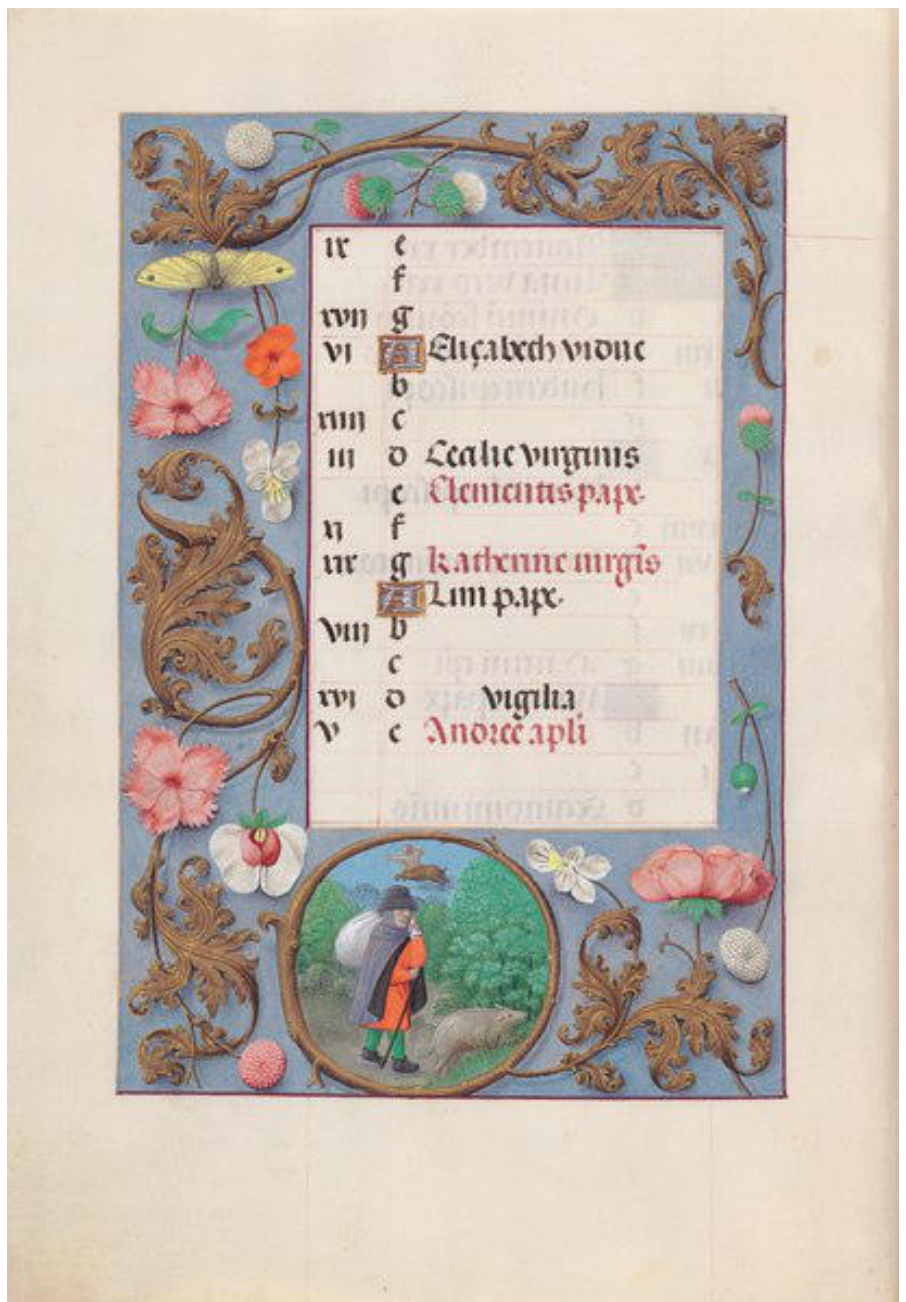 ix e
f
xvii g
vi A Elizabeth vidue
b
xiiii c
iii d Cecilie virginis
e Clementis pape.
xi f
xix g Katherine virgīs
A Lini pape.
viii b
c
xvi d vigilia
v e Andree apli